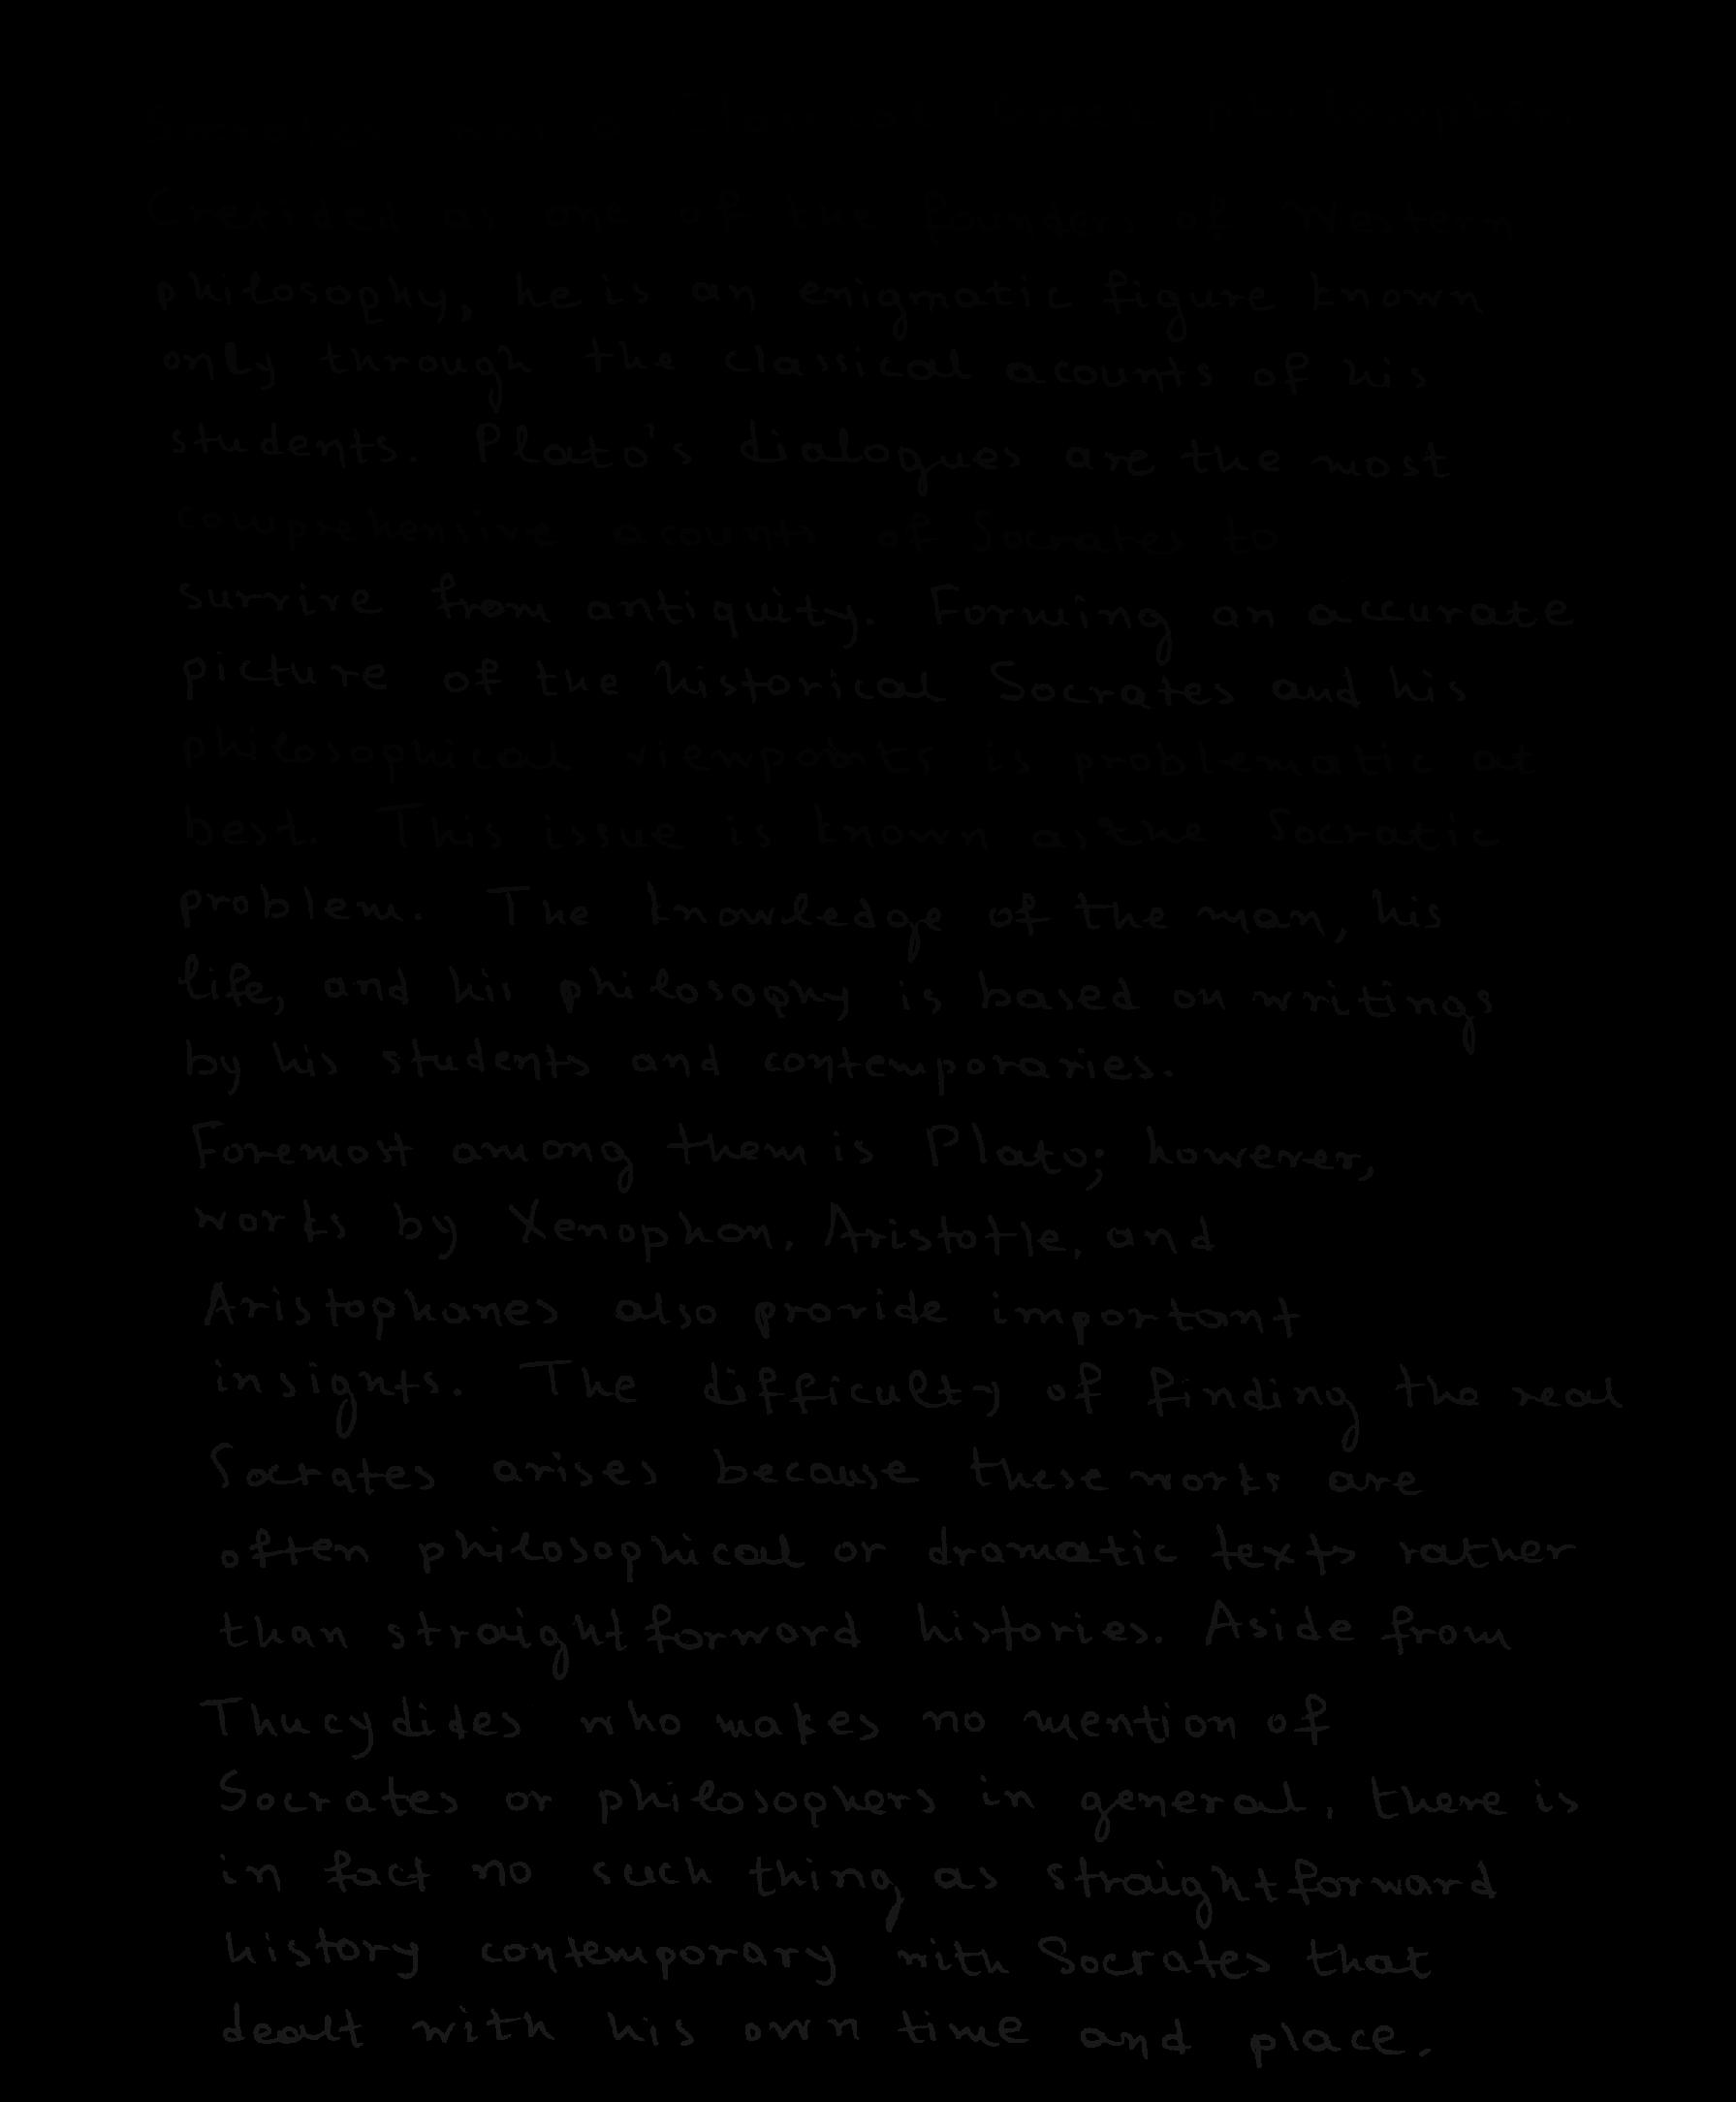 Credided as one of the founders of Western
philosophy, he is an enigmatic figure known
only through the classical acounts of his
students. Plato's dialogues are the most
comprehensive acounts of Socrates to
survive from antiquity. Forming an accurate
picture of the historical Socrates and his
philosophical viewpoints is problematic at
best. This issue is known as the Socratic
problem. The knowledge of the man, his
life, and his philosophy is based on writings
by his students and contemporaries.
Foremost among them is Plato; however,
works by Xenophon, Aristotle, and
Aristophanes also provide important
insights. The difficulty of finding the real
Socrates arises because these works are
often philosophical or dramatic texts rather
than straightforward histories. Aside from
Thucydides who makes no mention of
Socrates or philosophers in general, there is
in fact no such thing as straightforward
history contemporary with Socrates that
dealt with his own time and place.